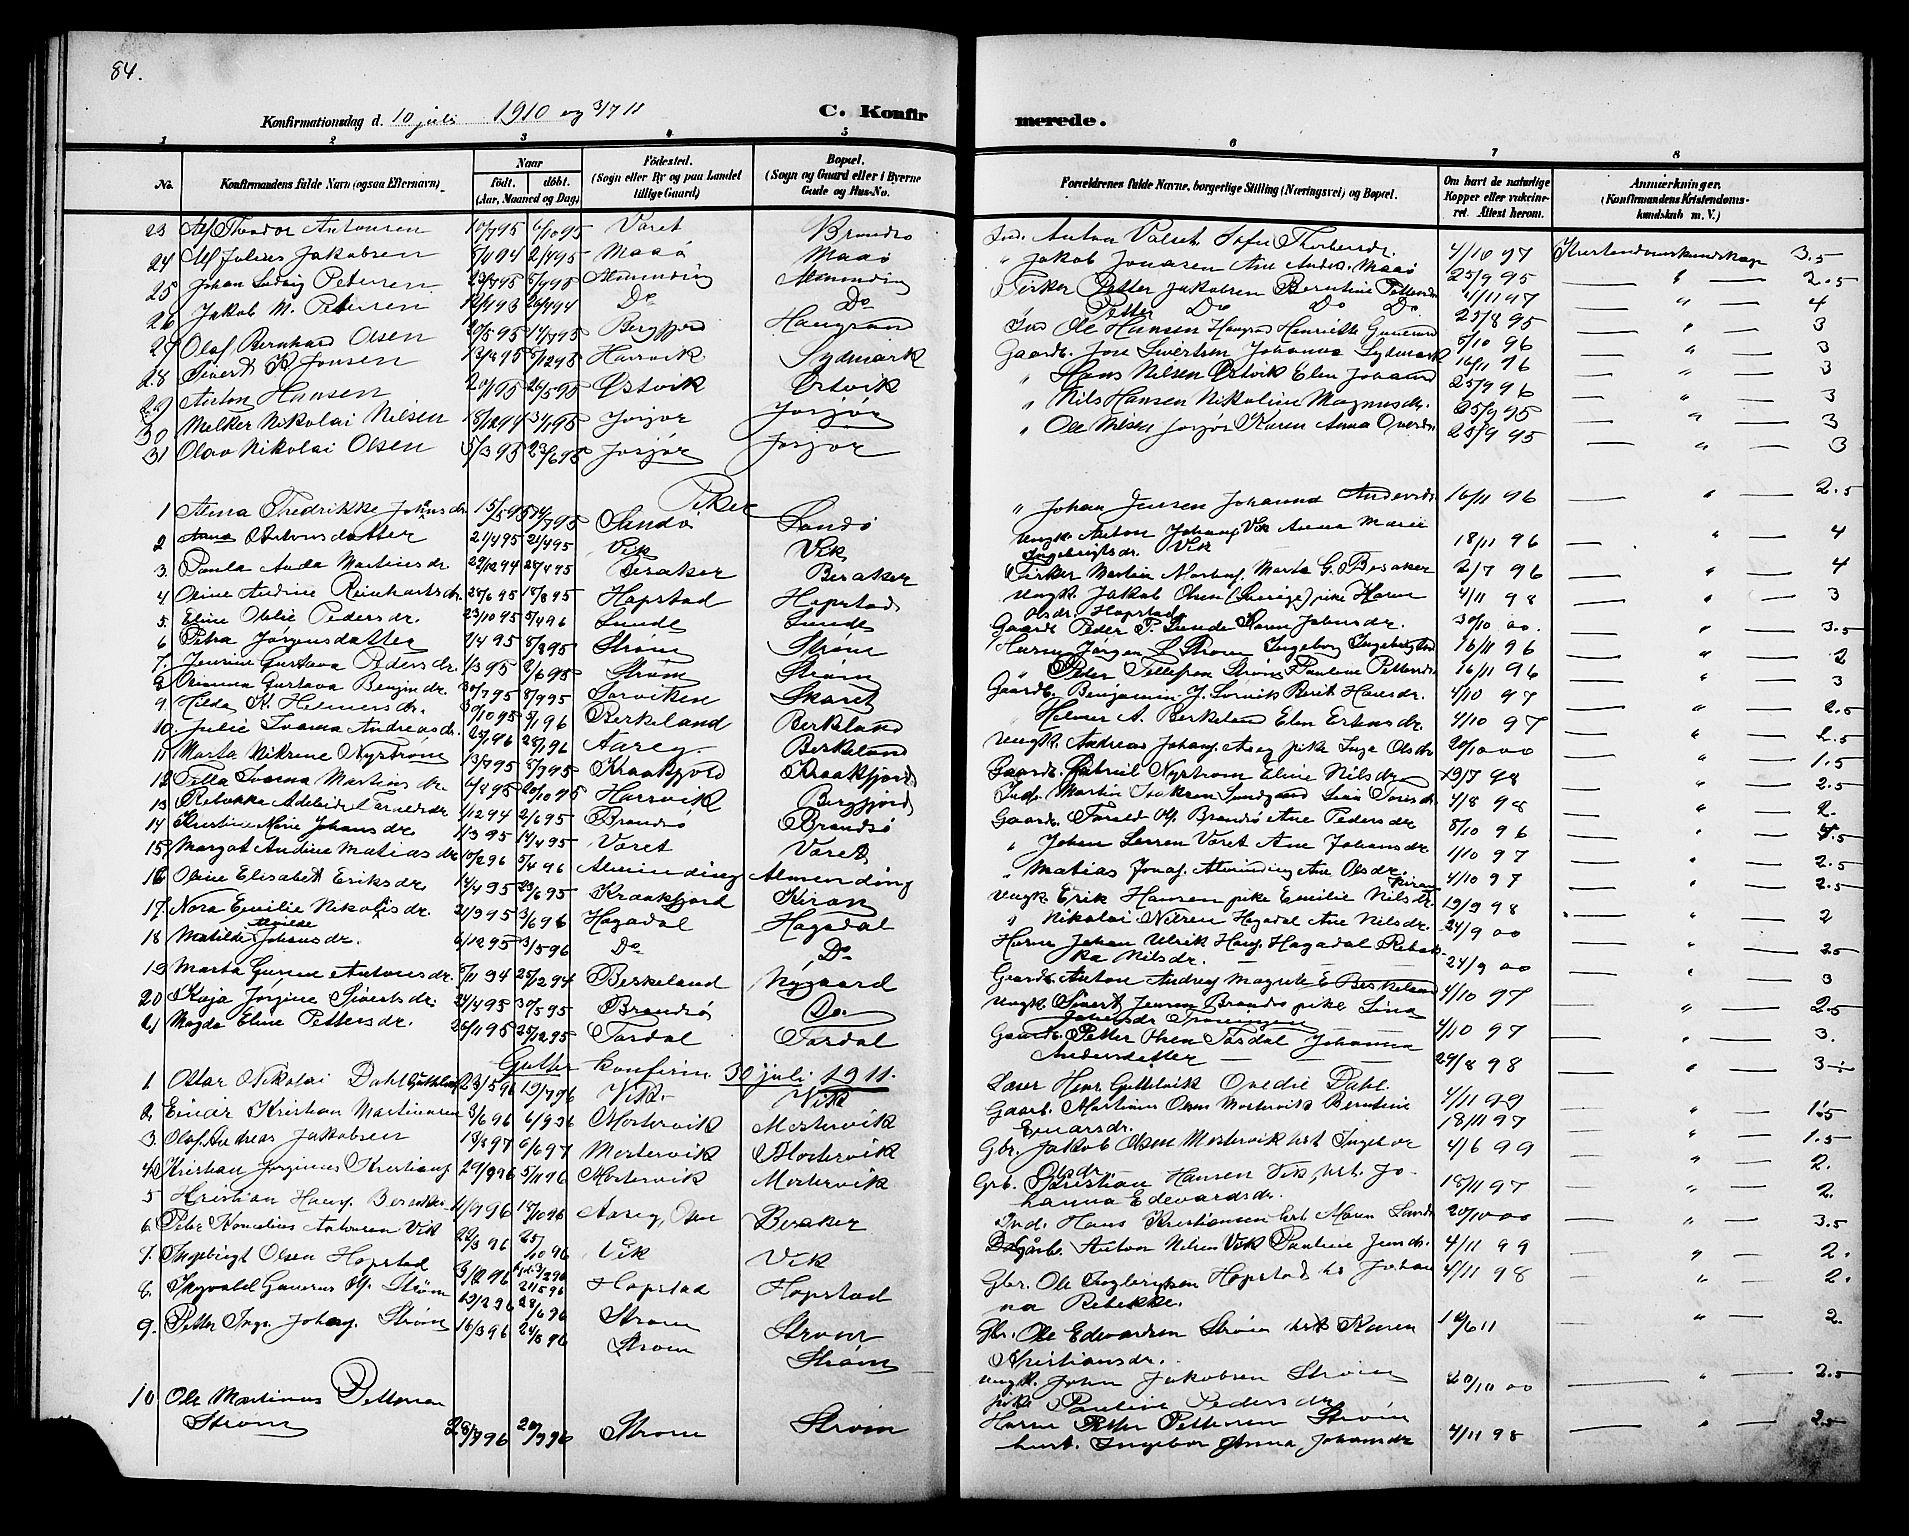 84.
Konfirmationsdag d. 10 juli 1910 og 3/7 11 C. Konfir merede.
1 2 3 4 5 6 7 8
No. Konfirmandens fulde Navn (ogsaa Efternavn). Naar født. døbt. (Aar, Maaned og Dag) Fødested. (Sogn eller By og paa Landet tillige Gaard) Bopæl. (Sogn og Gaard eller i Byerne Gade og Hus-No. Forældrenes fulde Navne, borgerlige Stilling (Næringsvei) og Bopæl. Om havt de naturlige Kopper eller vaccineret. Attest herom. Anmærkninger. (Konfirmandens Kristendomskundskab m. V.)
23 Alf Theodor Antonsen 10/7 95 6/10 95 Varet Brandsø Ind. Anton Valset Sofie 4/10 97 Kristendomskundskap 3.5
24 Alf Julius Jakobsen 8/4 94 2/4 95 Maasø Maasø " Jakob Jonasen Ane Anders. Maasø 25/9 95 " 2.5
25 Johan Ludvig Petersen Almending Almending Firker Petter Jakobsen Berntine Pettersdr 4/11 97 " 4
26 Jakob M. Petersen Do Do Petter Do Do Do 25/8 95 " 3
27 Olaf Bernhard Olsen 20/5 95 14/7 95 Bergfjord Haugran Ind Ole Hansen Haugran Henriette 5/10 96 " 3
28 Sivert K Jonsen 13/8 95 5/12 95 Harsvik Sydmark Gaardb. Jon Sivertsen Johanna Sydmark 16/11 96 " 3
29 Anton Hansen 20/1 95 26/5 95 Østvik Østvik " Hans Nilsen Østvik Elen Johans 25/9 96 " 3
30 Melker Nikolai Nilsen 18/12 94 13/1 95 Josjør Josjør " Nils Hansen Nikoline Magnusdr. 25/9 95 " 3
31 Olav Nikolai Olsen 5/3 95 23/6 95 Josjør Josjør " Ole Nilsen Josjør Karen Anna 28/9 95 " 3
Piker
1 Alma Fredrikke Johansdr. 15/5 95 Sandø Sandø " Johan Jensen Johanna Andersdr 16/11 96 " 2.5
2 Anna Antonsdatter 21/4 95 21/4 95 Vik Vik Ungk. Anton Johans. Vik Anna Marie
Ingebrigtsdr. Vik 18/11 96 " 4
3. Paula Anda Martinsdr. 29/12 94 28/4 95 Beraker Beraker Firker Martin Marta G. Besaker 2/7 96 " 4
4 Oline Andine Reinhartsdr. 28/6 95 18/8 95 Hopstad Hopstad Ungk. Jakob Olsen (Sverige) pike Karen
Olsdr. Hopstad 4/11 98 " 3
5 Eline Oblie Pedersdr. 23/10 95 5/4 96 Sunde Sunde Gaardb Peder P. Sunde Karen Johnsdr. 30/10 00. " 3.5
6 Petra Jørgensdatter 2/4 95 5/8 95 Strøm Strøm Husm. Jørgen L Strøm Ingeborg Ingebrigtsdr 16/11 96 " 2
7. Jensine Gustava Pedersdr. 1/3 95 2/6 95 Strøm Strøm " Peder Tellefsen Strøm Pauline Pettersdr 16/11 96 " 3
8 Gustava Benjamdr. 30/7 95 8/9 95 Sorviken Skaret Gaardb. Benjamin J. Sorvik Berit Hansdr. 4/10 97 " 2.5
9. Hilda K. Helmersdr. 30/10 95 5/1 96 Berkeland Berkeland " Helmer A. Berkeland Elen Eriksdr 4/10 97 " 2.5
10. Julie Ivarna Andreasdr. 25/1 96 28/1 96 Aareg. Berkeland Ungk. Andreas Johans. Aareg pike Inge Olsdr 20/10 00 " 1.5
11 Marta Nikrine Nystrøm 13/4 95 5/7 95 Kraakfjord Kraakfjord Gaardb. Gabriel Nystrøm Eline Nilsdr. 29/7 98 " 2.5
12 Tilla Ivarna Martinsdr. 6/8 95 20/10 95 Harsvik Bergfjord Inds. Martin Isaksen Sundgaard Lina Torisdr 4/8 98 " 2.
13 Rebekka Adelaide 1/12 94 2/6 95 Brandsø Brandsø Gaardb. Brandsø Ane Pedersdr 8/10 96 " 4.5
14 Kristine Marie Johansdr 1/3 95 14/4 95 Varet Varet " Johan Larsen Varet Ane Johansdr 4/10 97 " 2.5
15 Margot Andine Matiasdr. 10/2 96 5/4 96 Almending Almending " Matias Jonas. Almending Ane Olsdr. 4/10 97 " 2.5
16 Oline Elisabet Eriksdr. 14/4 95 23/6 95 Kraakfjord Kiran Ungk. Erik Hansen pike Emilie Nilsdr. Kiran 19/9 98 " 2
17. Nora Emilie Nikolaisdr. 21/9 95 3/6 96 Hagadal Hagadal " Nikolai Nilsen Hagadal Ane Nilsdr. 24/9 00
18 Matilde Johansdr. 6/12 95 3/5 96 Do Do Husm Johan Ulrik Hans. Hagadal Rebek-
ka Nilsdr. 24/9 00 " 2.5
19 Marta Gurine Antonsdr. 5/11 94 25/12 94 Berkeland Nygaard Gaardb. Anton Andreas. Magrete E Berkeland 4/10 97 " 3
20 Kaja Jørgine Sivertsdr. 24/4 95 30/5 95 Brandsø Do. Ungk Sivert Jensen Brandsø pike Lina
Johansdr 4/10 97 " 2.5
21 Magda Eline Pettersdr. 26/11 95 25/12 95 Tørdal Tørdal Gaardb. Petter Olsen Tørdal Johanna
Andersdatter 29/8 98 " 3.
Gutter konfirm. 30 juli 1911.
1 Oskar Nikolai Dahl Guttelvik 23/5 96 19/7 96 Vik. Vik Læser Henr. Guttelvik Ovedie Dahl. 4/11 99 " 3
2 Einar Kristian Martinusen 3/6 96 6/9 96 Mostervik Mostervik Gaarb. Martinus Olsen Mostervik Berntine
Einarsdr. 18/11 97 " 1.5
3 Olaf Andreas Jakobsen 18/3 97 6/6 97 Mostervik Mostervik Gbr. Jakob Olsen Mostervik hst Ingebor
Olsdr. 4/6 99 " 1.5
4 Kristian Jørginus Kristians. 29/9 96 5/11 96 Mostervik Mostervik Grb. Kristian Hansen Vik, hst. Jo-
hanna Edevardsdr. 18/11 97 " 2.
5 Kristian Hans. Besaker 11/9 96 18/10 96 Aareg, Osen Besaker Ind. Hans Kristiansen hst Maren Sand 20/10 00 " 2.
6. Peter Kornelius Antonsen Vik 22/3 96 25/10 96 Vik Vik Gårb. Anton Nilsen Vik Pauline Jensdr. 4/11 99 " 3.5
7. Ingebrigt Olsen Hopstad 3/12 96 Hopstad Hopstad Gbr. Ole Ingebrigtsen Hopstad hs Johan
na Rebekke. 4/11 98 " 2.
8. Ingvald Strøm 19/2 96 28/6 96 Strøm Strøm Gbr. Ole Edvardsen Strøm hst Karen
Kristiansdr. 10/6 11 " 2.
9. Petter Ingv. Johans. Strøm 16/3 96 24/8 96 Strøm Strøm Ungk. John Jakobsen Strøm
pike Pauline Pedersdr 20/10 00 " 2.5
10 Ole Martinus Pettersen
Strøm 28/7 96 20/9 96 Strøm Strøm Husm Petter Pettersen Strøm
hust. Ingebor Anna Johansdr 4/11 98 " 2.5